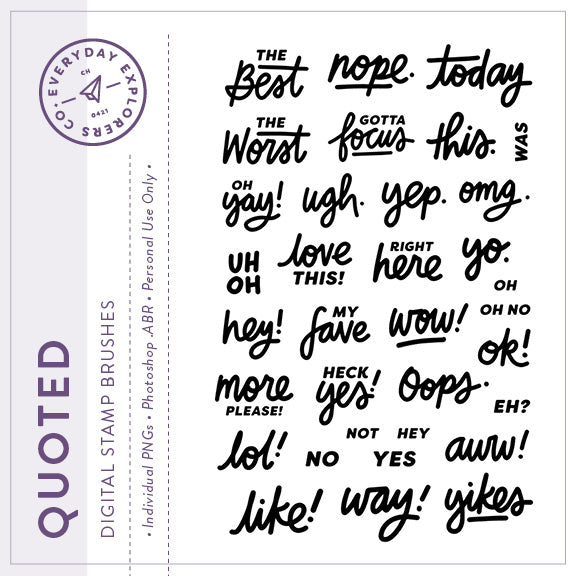 EVERYDAY EXPLORERS CO.
CH
0421
QUOTED
DIGITAL STAMP BRUSHES
• Individual PNGs • Photoshop .ABR • Personal Use Only •
THE
Best nope. today
THE
Worst
GOTTA
focus this. WAS
OH
yay! ugh. yep. omg.
UH
OH
love
THIS!
RIGHT
here yo.
OH
OH NO
hey!
MY
fave wow! ok!
more
PLEASE!
HECK
yes! Oops.
EH?
lol! NO
NOT HEY
YES aww!
like! way! yikes